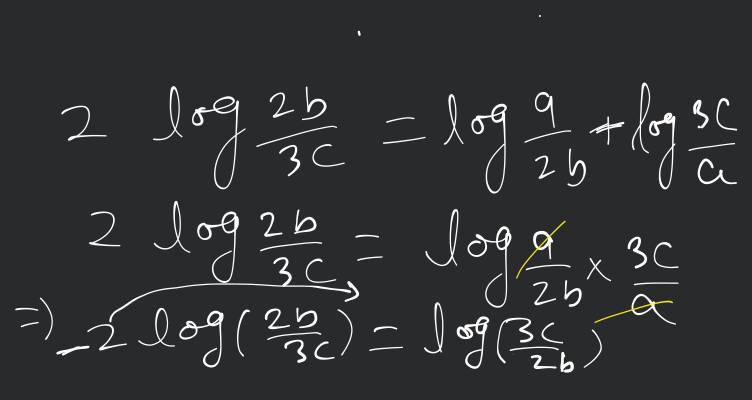 2 log 2b/3c = log a/2b + log 3c/a
2 log 2b/3c = log a/2b × 3c/a
=) -2 log(2b/3c) = log(3c/2b)